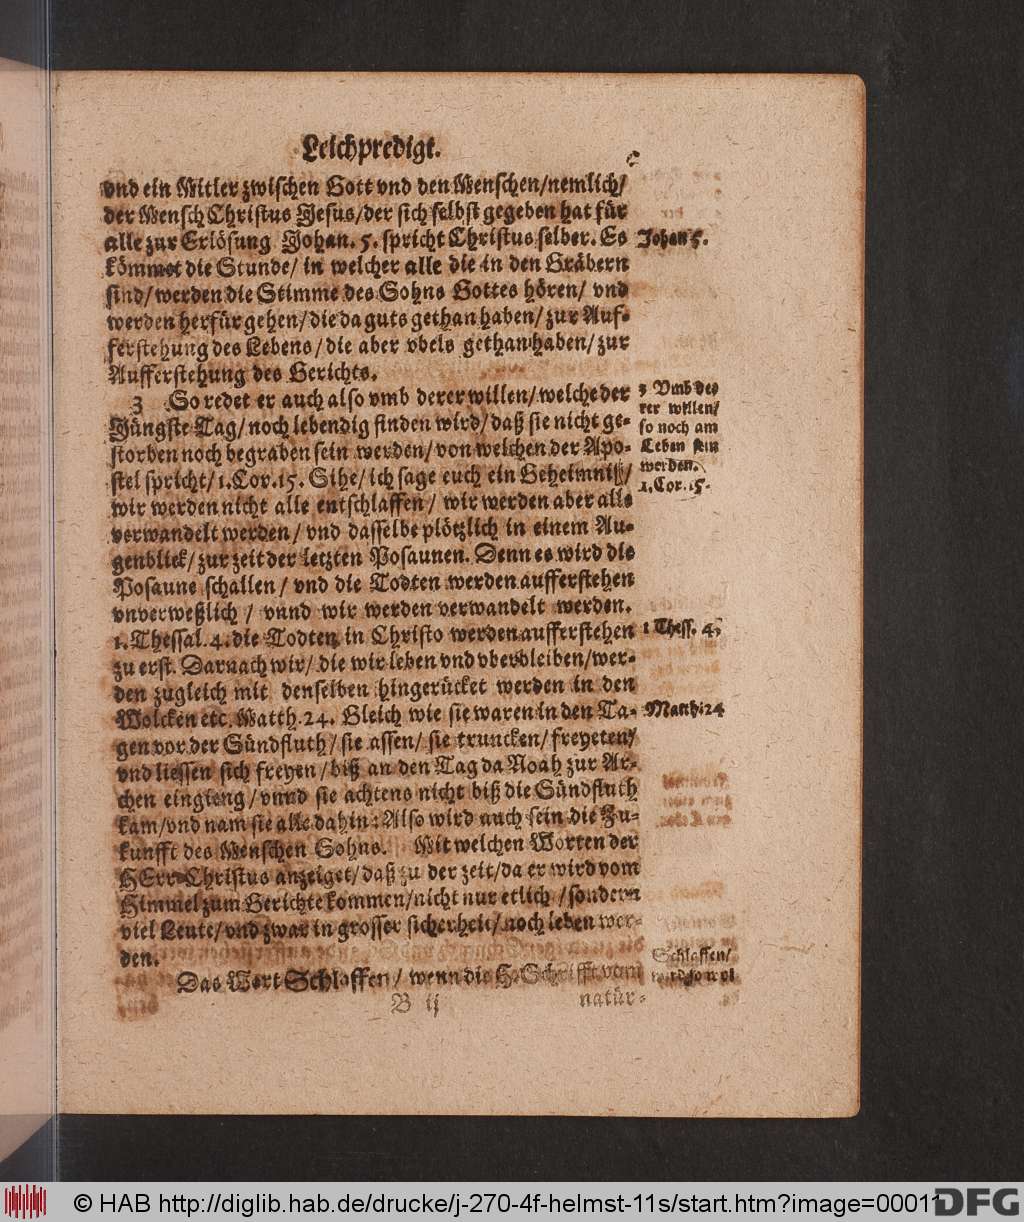 Leichpredigt.
vnd ein Mitler zwischen Gott vnd den Menschen/nemlich/
der Mensch Christus Jesus/der sich selbst gegeben hat für
alle zur Erlösung Johan. 5. spricht Christus selber. Es
Johan 5.
kömmet die Stunde/ in welcher alle die in den Gräbern
sind/werden die Stimme des Sohns Gottes hören/ vnd
werden herfür gehen/die da guts gethan haben/ zur Auf-
ferstehung des Lebens/die aber vbels gethan haben/ zur
Aufferstehung des Gerichts.
3 So redet er auch also vmb derer willen/welche der
3 Vmb de-
rer willen/
Jüngste Tag/noch lebendig finden wird/daß sie nicht ge-
so noch am
storben noch begraben sein werden/von welchen der Apo-
Leben sein
werden.
stel spricht/1. Cor. 15. Sihe/ich sage euch ein Geheimniß/
1. Cor. 15.
wir werden nicht alle entschlaffen/ wir werden aber alle
verwandelt werden/ vnd dasselbe plötzlich in einem Au-
genblick/zur zeit der letzten Posaunen. Denn es wird die
Posaune schallen/ vnd die Todten werden aufferstehen
vnverweßlich/ vnnd wir werden verwandelt werden.
1. Thessal. 4. die Todten in Christo werden aufferstehen
1 Thess. 4.
zu erst. Darnach wir/ die wir leben vnd vberbleiben/wer-
den zugleich mit denselben hingerücket werden in den
Wolcken etc. Matth. 24. Gleich wie sie waren in den Ta-
Matth. 24
gen vor der Sündfluth/sie assen/sie truncken/freyeten/
vnd liessen sich freyen/biß an den Tag da Noah zur Ar-
chen eingieng/vnnd sie achtens nicht biß die Sündfluth
kam/vnd nam sie alle dahin: Also wird auch sein die Zu-
kunfft des Menschen Sohns. Mit welchen Worten der
HErr Christus anzeiget/daß zu der zeit/da er wird vom
Himmel zum Gerichte kommen/nicht nur etlich/sondern
viel Leute/vnd zwar in grosser sicherheit/noch leben wer-
den.
Schlaffen/
Das Wort Schlaffen/ wenn die H. Schrifft vom
B ij
natür-
© HAB http://diglib.hab.de/drucke/j-270-4f-helmst-11s/start.htm?image=00011
DFG